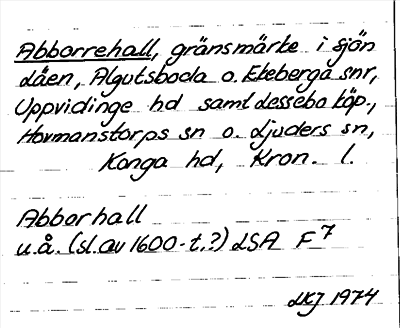 Abborrehall, gränsmärke i sjön
Låen, Algutsboda o. Ekeberga snr,
Uppvidinge hd samt Lessebo köp.,
Hovmanstorps sn o. Ljuders sn,
Konga hd, Kron. l.
Abborhall
u.å. (sl. av 1600-t.?) LSA F7
LKJ 1974